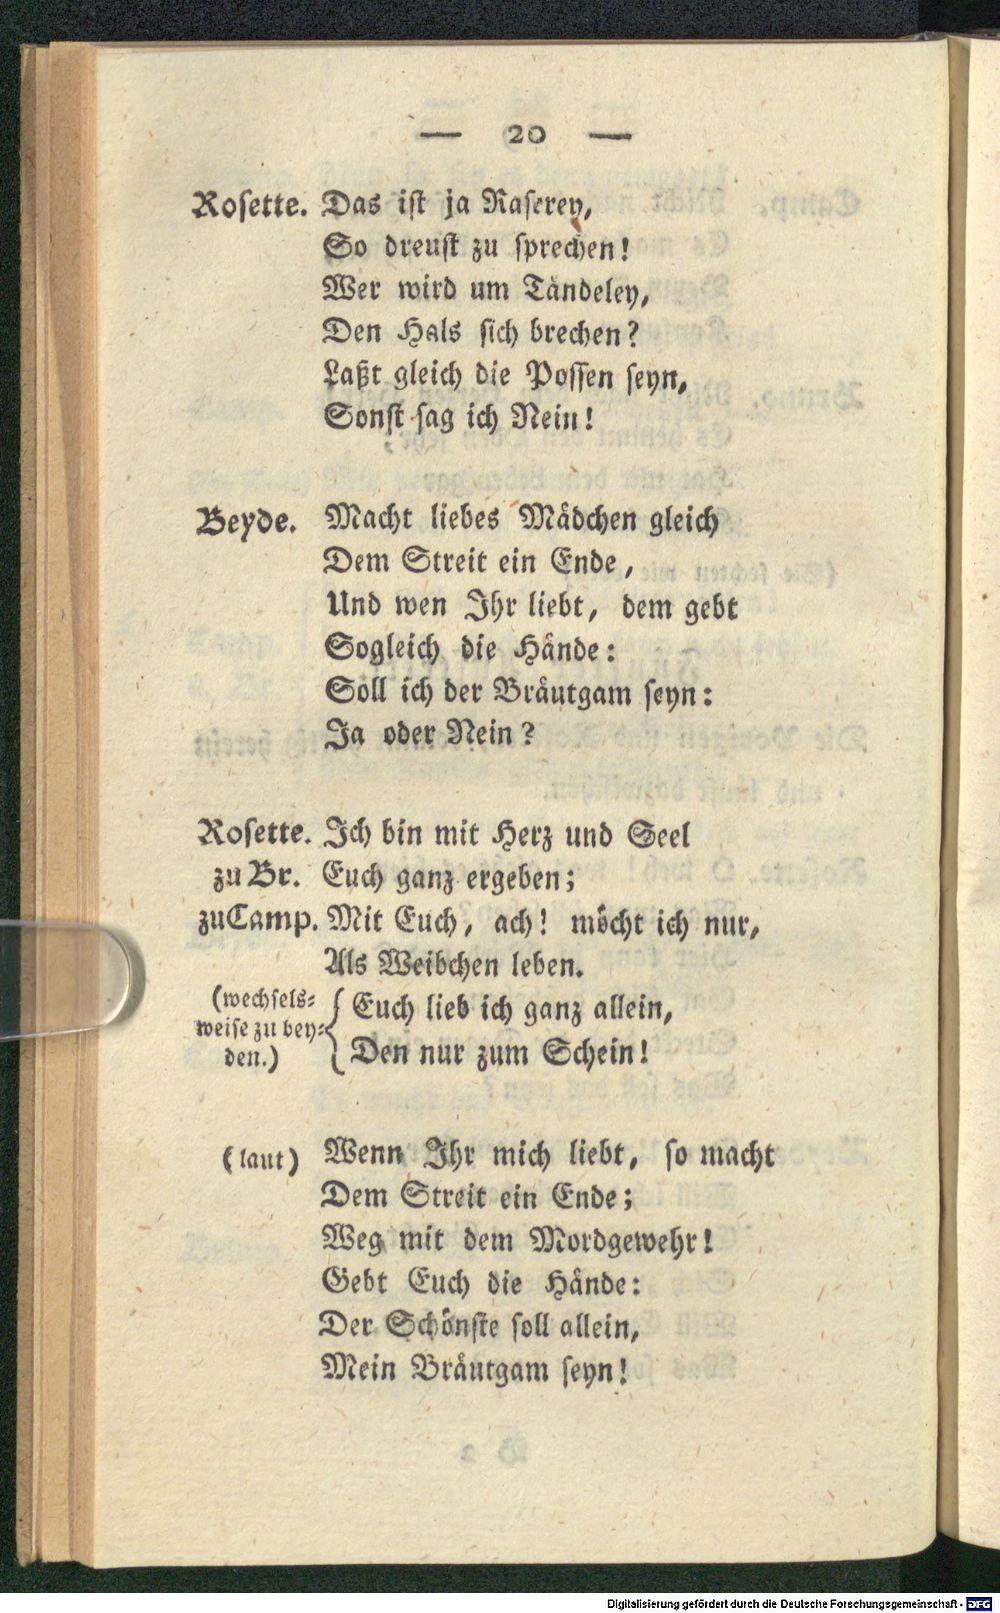 — 20 —
Rosette. Das ist ja Raserey,
So dreust zu sprechen!
Wer wird um Tändeley,
Den Hals sich brechen?
Laßt gleich die Possen seyn,
Sonst sag ich Nein!
Beyde. Macht liebes Mädchen gleich
Dem Streit ein Ende,
Und wen Ihr liebt, dem gebt
Sogleich die Hände:
Soll ich der Bräutgam seyn:
Ja oder Nein?
Rosette. Ich bin mit Herz und Seel
zu Br. Euch ganz ergeben;
zu Camp. Mit Euch, ach! möcht ich nur,
Als Weibchen leben.
(wechsels-
weise zu bey-
den.)
Euch lieb ich ganz allein,
Den nur zum Schein!
(laut) Wenn Ihr mich liebt, so macht
Dem Streit ein Ende;
Weg mit dem Mordgewehr!
Gebt Euch die Hände:
Der Schönste soll allein,
Mein Bräutgam seyn!
Digitalisierung gefördert durch die Deutsche Forschungsgemeinschaft - DFG